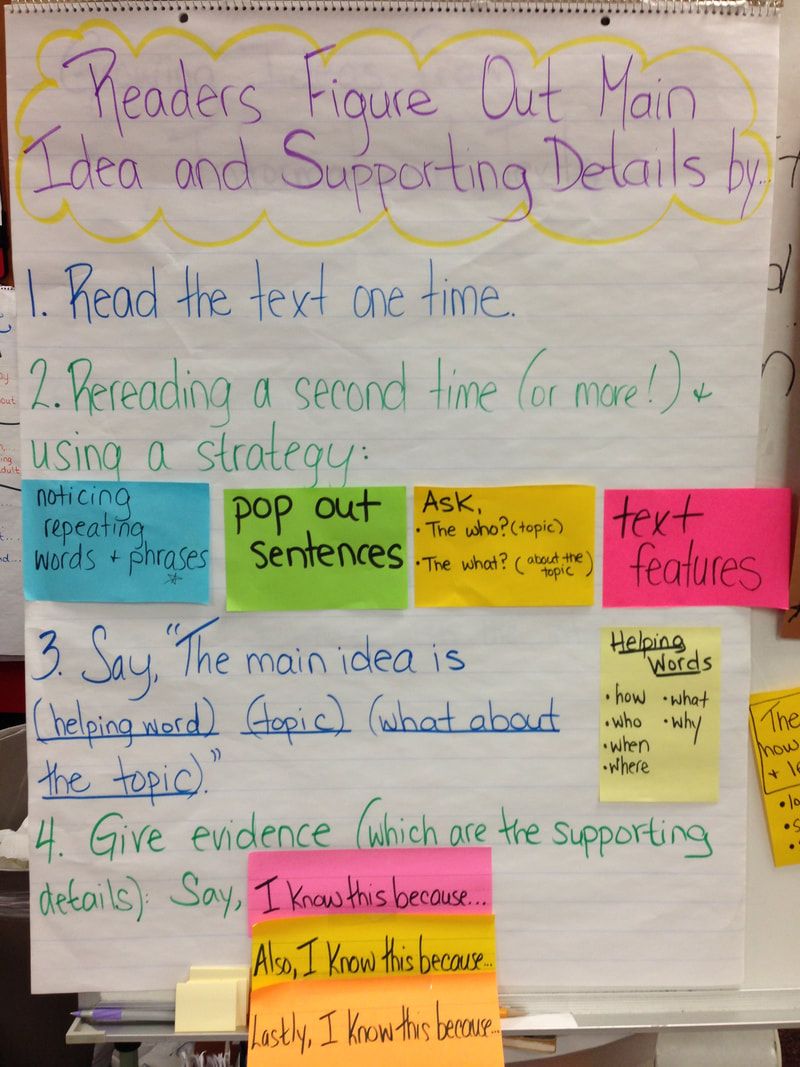 Readers Figure Out Main
Idea and Supporting Details by...
1. Read the text one time.
2. Rereading a second time (or more!) +
using a strategy:
noticing
repeating
words + phrases
pop out
sentences
Ask,
• The who? (topic)
• The what? (about the
topic)
text
features
3. Say, "The main idea is
(helping word) (topic) (what about
the topic)."
Helping
Words
• how • what
• who • why
• when
• where
4. Give evidence (which are the supporting
details): Say, I know this because...
Also, I know this because...
Lastly, I know this because...
The
how